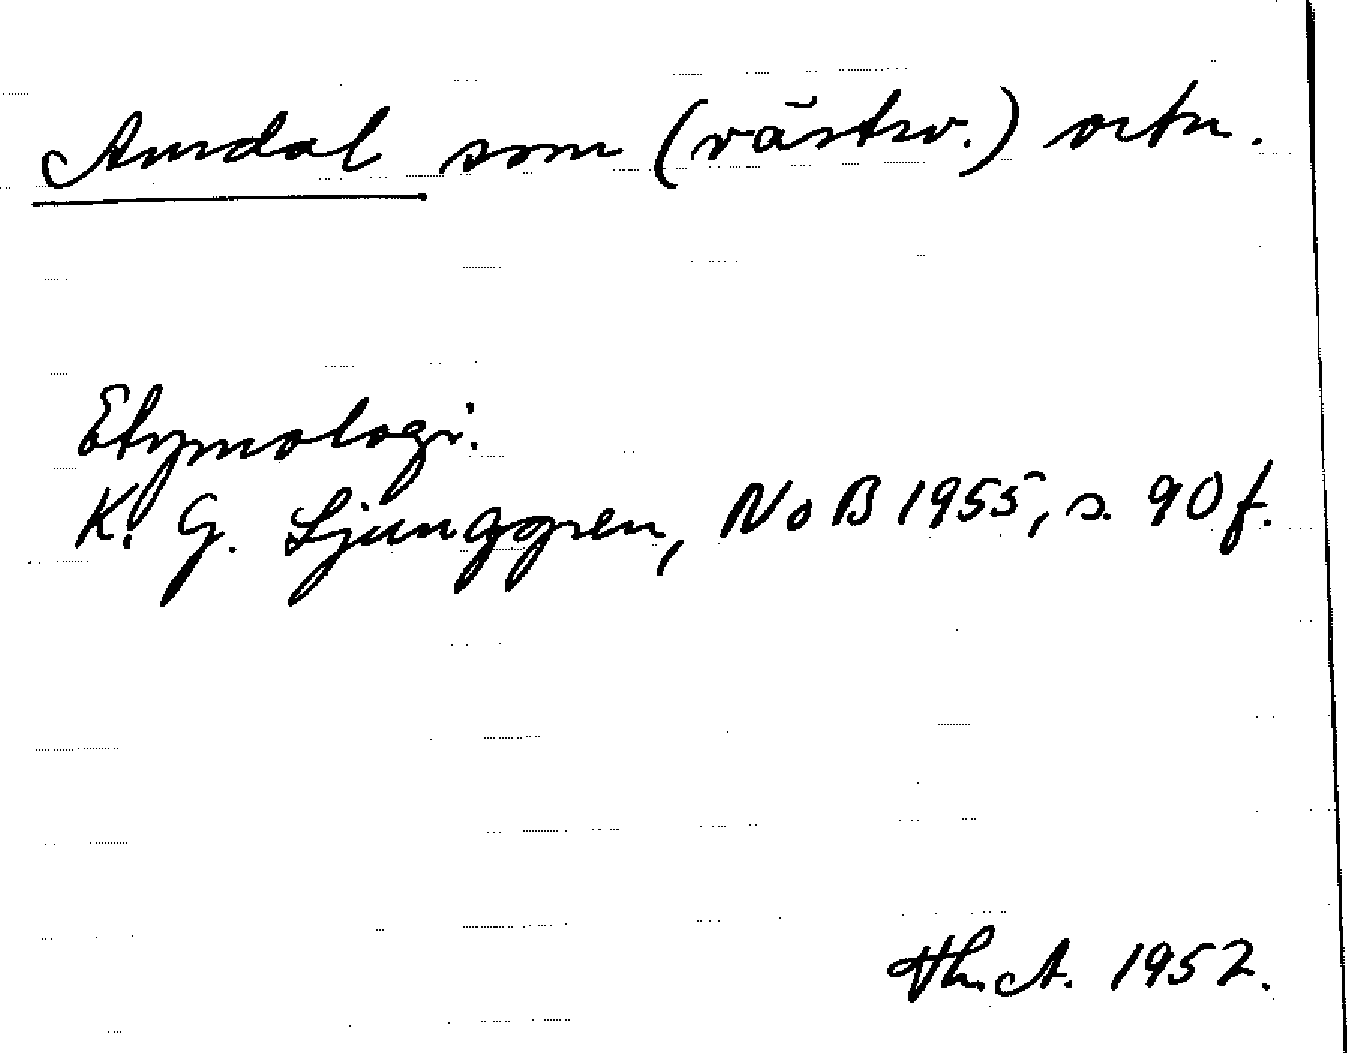 Amdal som (västsv.) ortn.
Etymologi.
K. G. Ljunggren, NoB 1955, s. 90 f.
Th. A. 1952.